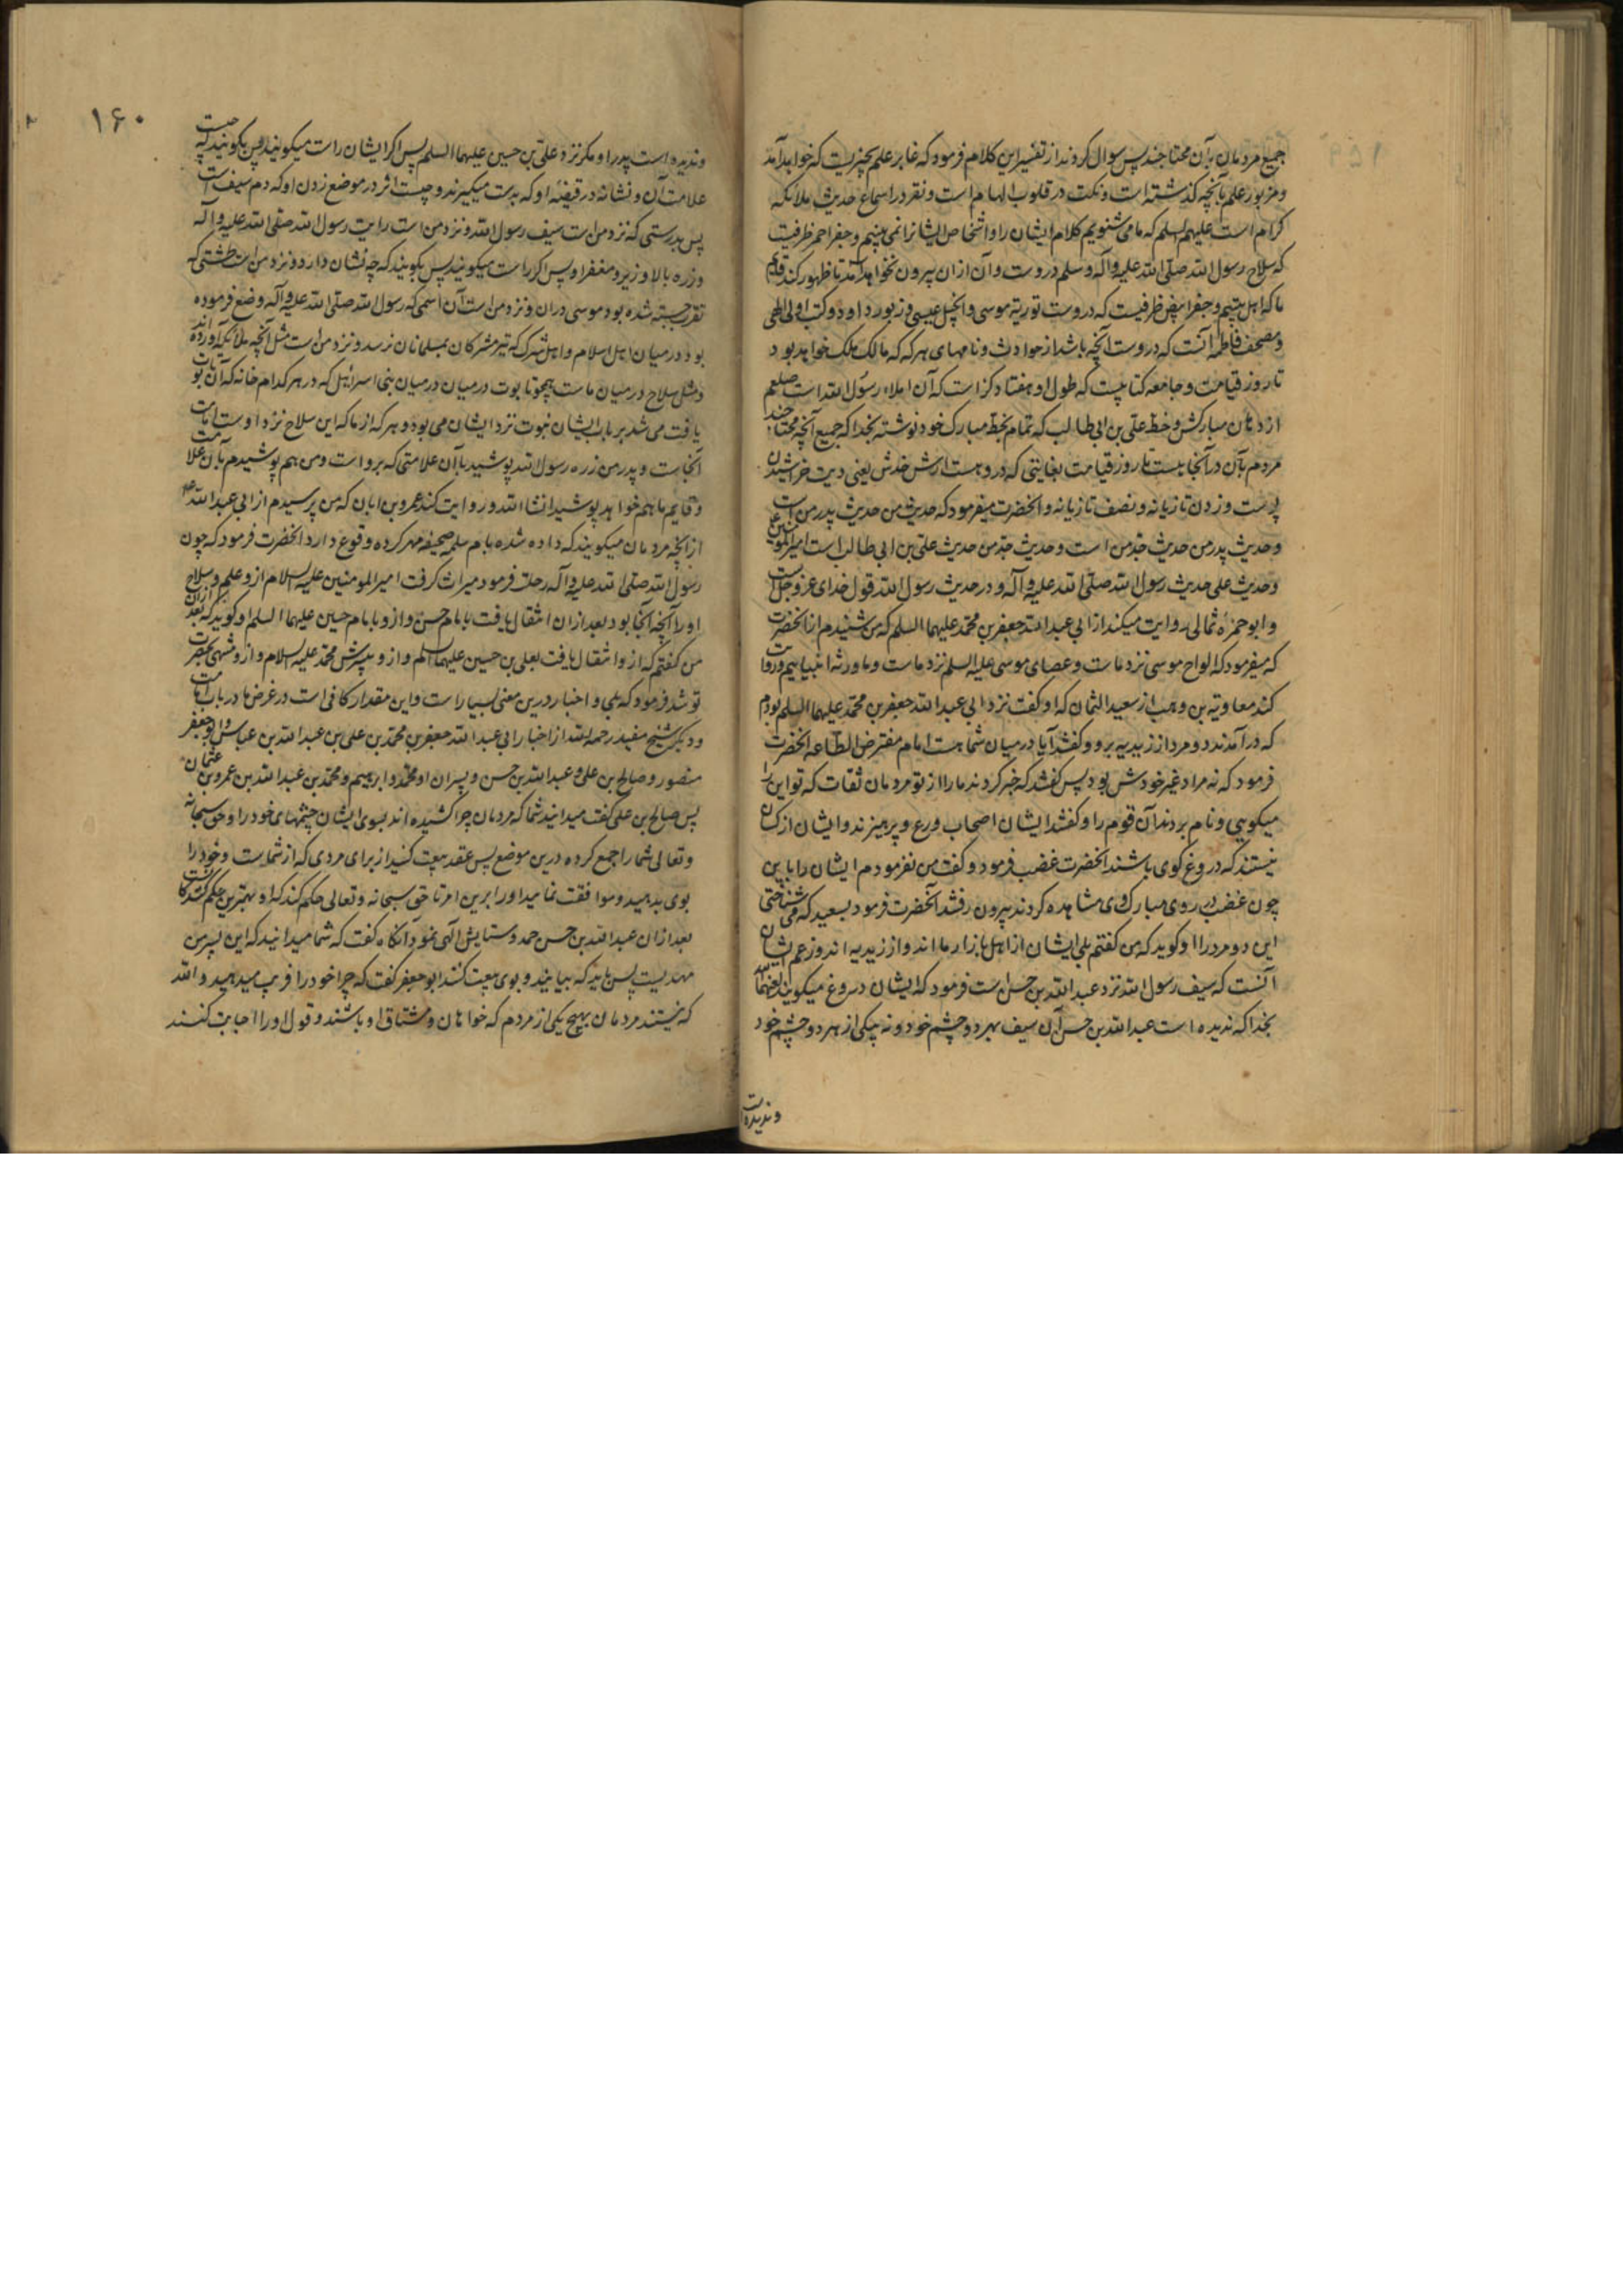 جمیع مردمان بآن محتاجند پس سوال کردند از تفسیر این کلام فرمود که غابر علم بچیزیست که خواهد آمد
و مزبور علم بآنچه گذشته است و نکت در قلوب الهام است و نقر در اسماع حدیث ملائکه
کرام است علیهم السلم که ما می شنویم کلام ایشان را و اشخاص ایشانرا نمی بینیم و جفر احمر ظرفیست
که سلاح رسول الله صلی الله علیه و آله و سلم دروست و آن از ان بیرون نخواهد آمد تا ظهور کند قایم
ما که اهل بیتیم و جفر ابیض ظرفیست که دروست توریة موسی و انجیل عیسی و زبور داود و کتب اولی الهی
و مصحف فاطمه آنست که دروست آنچه باشد از حوادث و نامهای هر که که مالک ملک خواهد بود
تا روز قیامت و جامعه کتابیست که طول او هفتاد گز است که آن املاء رسول الله است صلعم
از دهان مبارکش و خط علی بن ابی طالب که تمام بخط مبارک خود نوشته بخدا که جمیع آنچه محتاجند
مردم بآن در آنجا هست تا روز قیامت بغایتی که درو هست ارش خدش یعنی دیت خراشیدن
پوست و زدن تازیانه و نصف تازیانه و انحضرت میفرمود که حدیث من حدیث پدر من است
و حدیث پدر من حدیث جد من است و حدیث جد من حدیث علی بن ابی طالب است امیرالمومنین
و حدیث علی حدیث رسول الله صلی الله علیه و آله و در حدیث رسول الله قول خدای عز و جل است
و ابو حمزه ثمالی روایت میکند از ابی عبدالله جعفر بن محمد علیهما السلم که من شنیدم از انحضرت
که میفرمود که الواح موسی نزد ماست و عصای موسی علیه السلم نزد ماست و ما ورثه انبیاییم و روایت
کند معاویة بن وهب از سعید السمان که او گفت نزد ابی عبدالله جعفر بن محمد علیهما السلم بودم
که درآمدند دو مرد از زیدیه برو و گفتند آیا در میان شما هست امام مفترض الطاعه انحضرت
فرمود که نه مراد غیر خودش بود پس گفتند که خبر کردند ما را از تو مردمان ثقات که تو این را
میگویی و نام بردند آن قوم را و گفتند ایشان اصحاب ورع و پرهیزند و ایشان از کسان
نیستند که دروغ گوی باشند انحضرت غضب فرمود و گفت من نفرمودم ایشان را باین
چون غضب در روی مبارک وی مشاهده کردند بیرون رفتند آنحضرت فرمود بسعید که می شناختی
این دو مرد را او گوید که من گفتم بلی ایشان از اهل بازار ما اند و از زیدیه اند و زعم ایشان
آنست که سیف رسول الله نزد عبدالله بن حسن است فرمود که ایشان دروغ میگویند لعنهما الله
بخدا که ندیده است عبدالله بن حسن آن سیف بهر دو چشم خود و نه بیکی از هر دو چشم خود
و ندیده است
۱۶۰
و ندیده است پدر او مگر نزد علی بن حسین علیهما السلم پس اگر ایشان راست میگویند پس بگویند که چیست
علامت آن و نشانه در قبضه او که بدست میگیرند و چیست اثر در موضع زدن او که دم سیف است
پس بدرستی که نزد من است سیف رسول الله و نزد من است رایت رسول الله صلی الله علیه و آله
و زره بالا و زیر و مغفر او پس اگر راست میگویند پس بگویند که چه نشان دارد و نزد من است طشتی که
تقرب جسته شده بود موسی دران و نزد من است آن اسمی که رسول الله صلی الله علیه و آله وضع فرموده
بود در میان اهل اسلام و اهل شرک که تیر مشرکان بمسلمانان نرسد و نزد من است مثل آنچه ملائکه آورده اند
و مثل سلاح در میان ماست همچو تابوت در میان بنی اسرائیل که در هر کدام خانه که آن تابوت
یافت می شد بر باب ایشان نبوت نزد ایشان می بود و هر که از ما که این سلاح نزد اوست امامت
آنجاست و پدر من زره رسول الله پوشید با آن علامتی که برو است و من هم پوشیدم بآن علامت
و قایم ما هم خواهد پوشید انشا الله و روایت کند عمرو بن ابان که من پرسیدم از ابی عبدالله ع
از آنچه مردمان میگویند که داده شده بام سلمه صحیفه مهر کرده وقوع دارد انحضرت فرمود که چون
رسول الله صلی الله علیه و آله رحلت فرمود میراث گرفت امیرالمومنین علیه السلام ازو علم و سلاح
او را آنچه آنجا بود بعد ازان انتقال یافت بامام حسن و ازو بامام حسین علیهما السلم او گوید که بعد ازان
من گفتم که ازو انتقال یافت بعلی بن حسین علیهما السلم و ازو بپسرش محمد علیه السلام و ازو منتهی بحضرت
تو شد فرمود که بلی و اخبار درین معنی بسیار است و این مقدار کافی است در غرض ما در باب امامت
و دیگر شیخ مفید رحمه الله از اخبار ابی عبدالله جعفر بن محمد بن علی بن عبدالله بن عباس و ابو جعفر
منصور و صالح بن علی و عبدالله بن حسن و پسران او محمد و ابرهیم و محمد بن عبدالله بن عمرو بن عثمان
پس صالح بن علی گفت میدانید شما که مردمان چرا کشیده اند بسوی ایشان چشمهای خود را و حق سبحانه
و تعالی شما را جمع کرده درین موضع پس عقد بیعت کنید از برای مردی که از شماست و خود را
بوی بدهید و موافقت نمایید او را برین امر تا حق سبحانه و تعالی حکم کند که او بهترین حکم کنندگانست
بعد ازان عبدالله بن حسن حمد و ستایش الهی نمود آنگاه گفت که شما میدانید که این پسر من
مهدیست پس باید که بیایند و بوی بیعت کنند ابو جعفر گفت که چرا خود را فریب میدهید و الله
که نیستند مردمان بهیچ یکی از مردم که خواهان و مشتاق او باشند و قول او را اجابت کنند